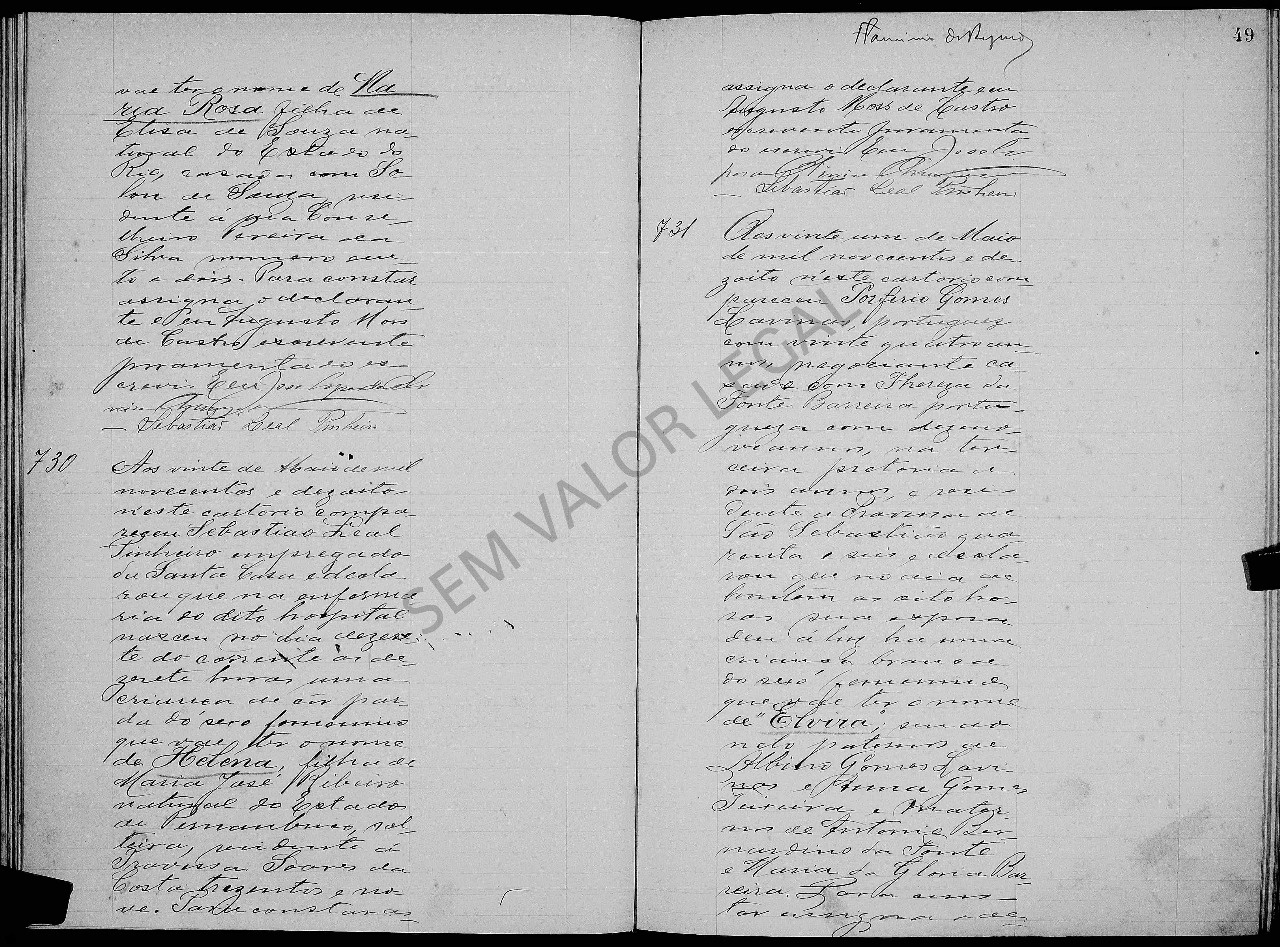 vae ter o nome de Ma
ria Rosa filha de
Elisa de Souza na
tural do Estado do
Rio, casada com So
lon de Souza, resi
dente á rua Conse
lheiro Pereira da
Silva numero oiten
ta e dois. Para constar
assigna o declaran
te e eu Augusto Moss
de Castro, escrevente
juramentado es
crevi. E eu José
Sebastião Leal Pinheiro
730
Aos vinte de Maio de mil
novecentos e dezoito
n'este cartorio compa
receu Sebastião Leal
Pinheiro empregado
da Santa Casa e decla
rou que na enferma
ria do dito hospital
nasceu no dia dezese
te do corrente ás de
zesete horas uma
criança de côr par
da do sexo femenino
que vae ter o nome
de Helena, filha de
Maria José Ribeiro
natural do Estado
de Pernambuco, sol
teira, residente á
Travessa Soares da
Costa trezentos e no
ve. Para constar as-
49
assigna o declarante e eu
Augusto Moss de Castro
escrevente juramenta
do escrevi E eu José
Sebastião Leal Pinheiro
731
Aos vinte um de Maio
de mil novecentos e de
zoito n'este cartorio com
pareceu Porfirio Gomes
Lavinas, portuguez
com vinte quatro an
nos, negociante ca
sado com Thereza da
Fonte Barreira portu
gueza com dezeno
ve annos, na ter
ceira pretoria a
dois annos, e resi
dente a Travessa de
São Sebastião qua
renta e seis e decla
rou que no dia de
hontem as oito ho
ras sua esposa
deu á luz ha uma
criança branca
do sexo femenino
que vae ter o nome
de "Elvira", sendo
neto paternos de
Albino Gomes Lavi
nas e Anna Gomes
Teixeira e mater
nos de Antonio Ber
nardino da Fonte
e Maria da Gloria Bar
reira. Para cons
tar assigna o de
SEM VALOR LEGAL